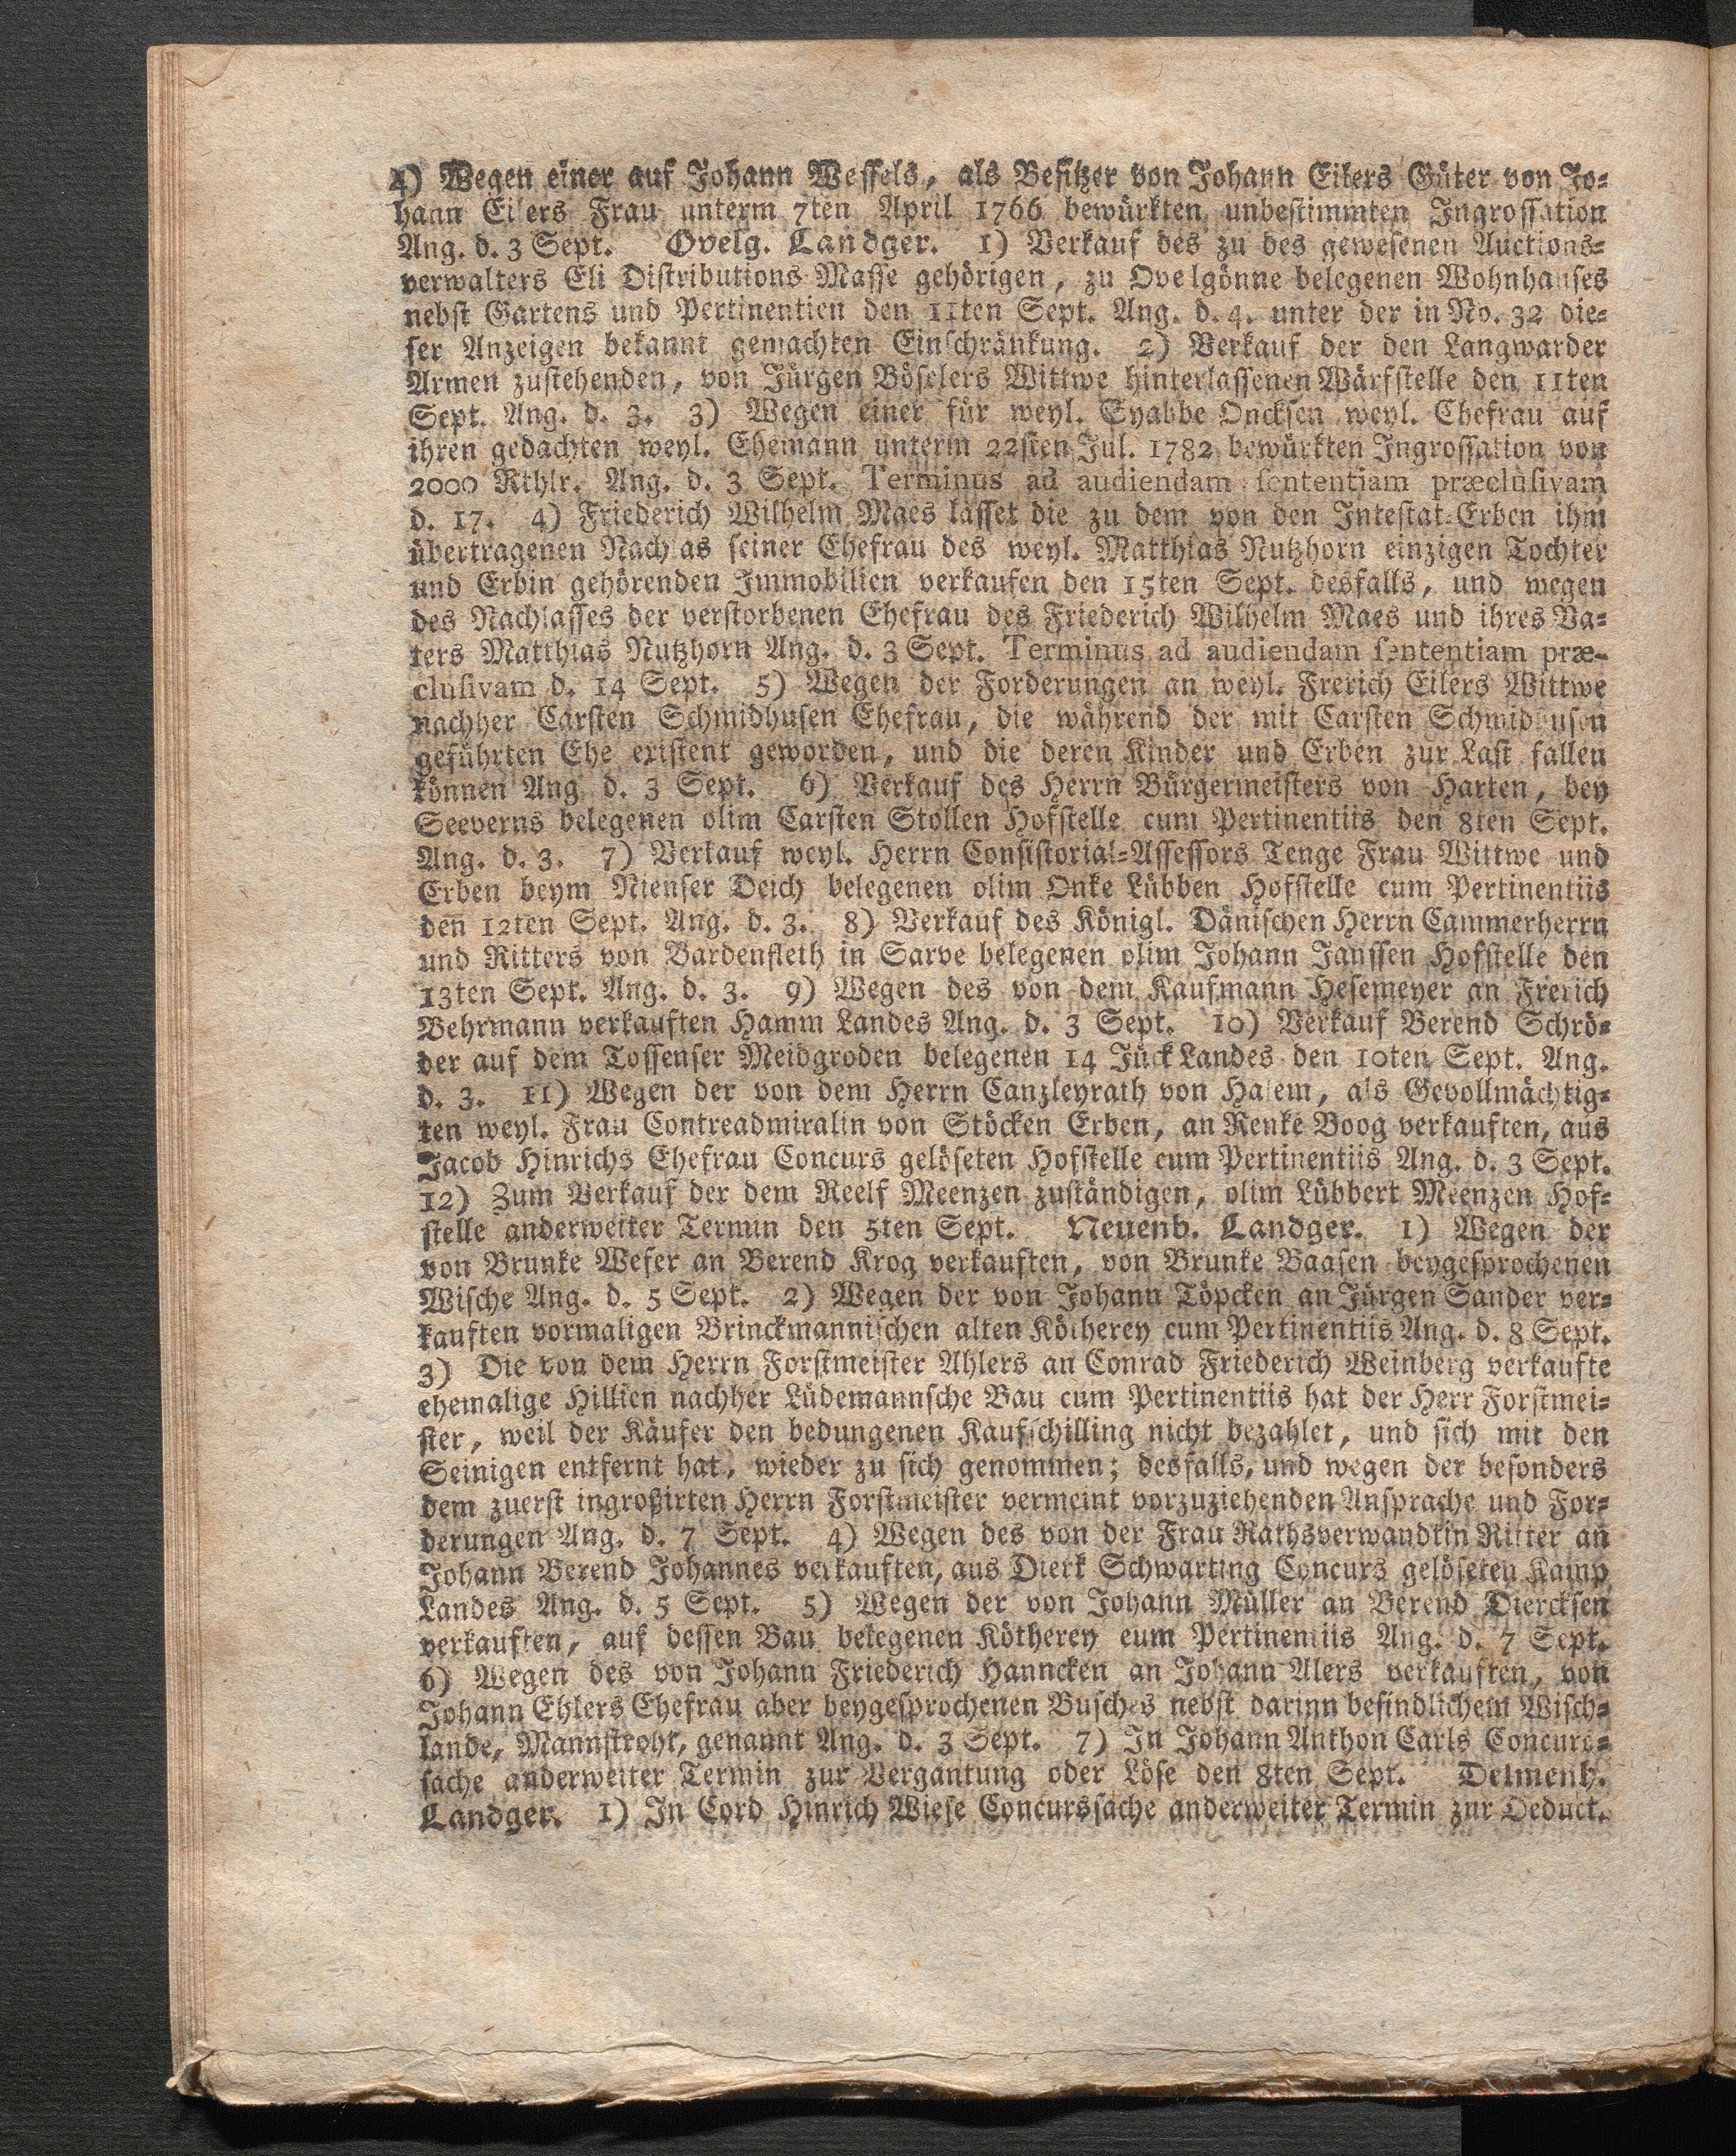 4) Wegen einer auf Johann Wessels, als Besitzer von Johann Eilers Güter von Jo-
hann Eilers Frau unterm 7ten April 1766 bewürkten unbestimmten Ingrossation
Ang. d. 3 Sept. Ovelg. Landger. 1) Verkauf des zu des gewesenen Auctions-
verwalters Eli Distributions-Masse gehörigen, zu Ovelgönne belegenen Wohnhauses
nebst Gartens und Pertinentien den 11ten Sept. Ang. d. 4. unter der in No. 32 die-
ser Anzeigen bekannt gemachten Einschränkung. 2) Verkauf der den Langwarder
Armen zustehenden, von Jürgen Böselers Wittwe hinterlassenen Wärfstelle den 11ten
Sept. Ang. d. 3. 3) Wegen einer für weyl. Syabbe Oncksen weyl. Ehefrau auf
ihren gedachten weyl. Ehemann unterm 22sten Jul. 1782 bewürkten Ingrossation von
2000 Rthlr. Ang. d. 3 Sept. Terminus ad audiendam sententiam præclusivam
d. 17. 4) Friederich Wilhelm Maes lässet die zu dem von den Intestat-Erben ihm
übertragenen Nachlas seiner Ehefrau des weyl. Matthias Nutzhorn einzigen Tochter
und Erbin gehörenden Immobilien verkaufen den 15ten Sept. desfalls, und wegen
des Nachlasses der verstorbenen Ehefrau des Friederich Wilhelm Maes und ihres Va-
ters Matthias Nutzhorn Ang. d. 3 Sept. Terminus ad audiendam sententiam præ-
clusivam d. 14 Sept. 5) Wegen der Forderungen an weyl. Frerich Eilers Wittwe
nachher Carsten Schmidhusen Ehefrau, die während der mit Carsten Schmidhusen
geführten Ehe existent geworden, und die deren Kinder und Erben zur Last fallen
können Ang d. 3 Sept. 6) Verkauf des Herrn Bürgermeisters von Harten, bey
Seeverns belegenen olim Carsten Stollen Hofstelle cum Pertinentiis den 8ten Sept.
Ang. d. 3. 7) Verkauf weyl. Herrn Consistorial-Assessors Tenge Frau Wittwe und
Erben beym Nienser Deich belegenen olim Onke Lübben Hofstelle cum Pertinentiis
den 12ten Sept. Ang. d. 3. 8) Verkauf des Königl. Dänischen Herrn Cammerherrn
und Ritters von Bardenfleth in Sarve belegenen olim Johann Janssen Hofstelle den
13ten Sept. Ang. d. 3. 9) Wegen des von dem Kaufmann Hesemeyer an Frerich
Behrmann verkauften Hamm Landes Ang. d. 3 Sept. 10) Verkauf Berend Schrö-
der auf dem Tossenser Meidgroden belegenen 14 Jück Landes den 10ten Sept. Ang.
d. 3. 11) Wegen der von dem Herrn Canzleyrath von Halem, als Gevollmächtig-
ten weyl. Frau Contreadmiralin von Stöcken Erben, an Renke Boog verkauften, aus
Jacob Hinrichs Ehefrau Concurs gelöseten Hofstelle cum Pertinentiis Ang. d. 3 Sept.
12) Zum Verkauf der dem Reelf Meenzen zuständigen, olim Lübbert Meenzen Hof-
stelle anderweiter Termin den 5ten Sept. Neuenb. Landger. 1) Wegen der
von Brunke Weser an Berend Krog verkauften, von Brunke Baasen beygesprochenen
Wische Ang. d. 5 Sept. 2) Wegen der von Johann Töpcken an Jürgen Sander ver-
kauften vormaligen Brinckmannischen alten Kötherey cum Pertinentiis Ang. d. 8 Sept.
3) Die von dem Herrn Forstmeister Ahlers an Conrad Friederich Weinberg verkaufte
ehemalige Hillien nachher Lüdemannsche Bau cum Pertinentiis hat der Herr Forstmei-
ster, weil der Käufer den bedungenen Kaufschilling nicht bezahlet, und sich mit den
Seinigen entfernt hat, wieder zu sich genommen; desfalls, und wegen der besonders
dem zuerst ingroßirten Herrn Forstmeister vermeint vorzuziehenden Ansprache und For-
derungen Ang. d. 7 Sept. 4) Wegen des von der Frau Rathsverwandtin Ritter an
Johann Berend Johannes verkauften, aus Dierk Schwarting Concurs gelöseten Kamp
Landes Ang. d. 5 Sept. 5) Wegen der von Johann Müller an Berend Diercksen
verkauften, auf dessen Bau belegenen Kötherey cum Pertinentiis Ang. d. 7 Sept.
6) Wegen des von Johann Friederich Hanncken an Johann Alers verkauften, von
Johann Ehlers Ehefrau aber beygesprochenen Busches nebst darinn befindlichem Wisch-
lande, Mannstroht, genannt Ang. d. 3 Sept. 7) In Johann Anthon Carls Concurs-
sache anderweiter Termin zur Vergantung oder Löse den 8ten Sept. Delmenh.
Landger. 1) In Cord Hinrich Wiese Concurssache anderweiter Termin zur Deduct.